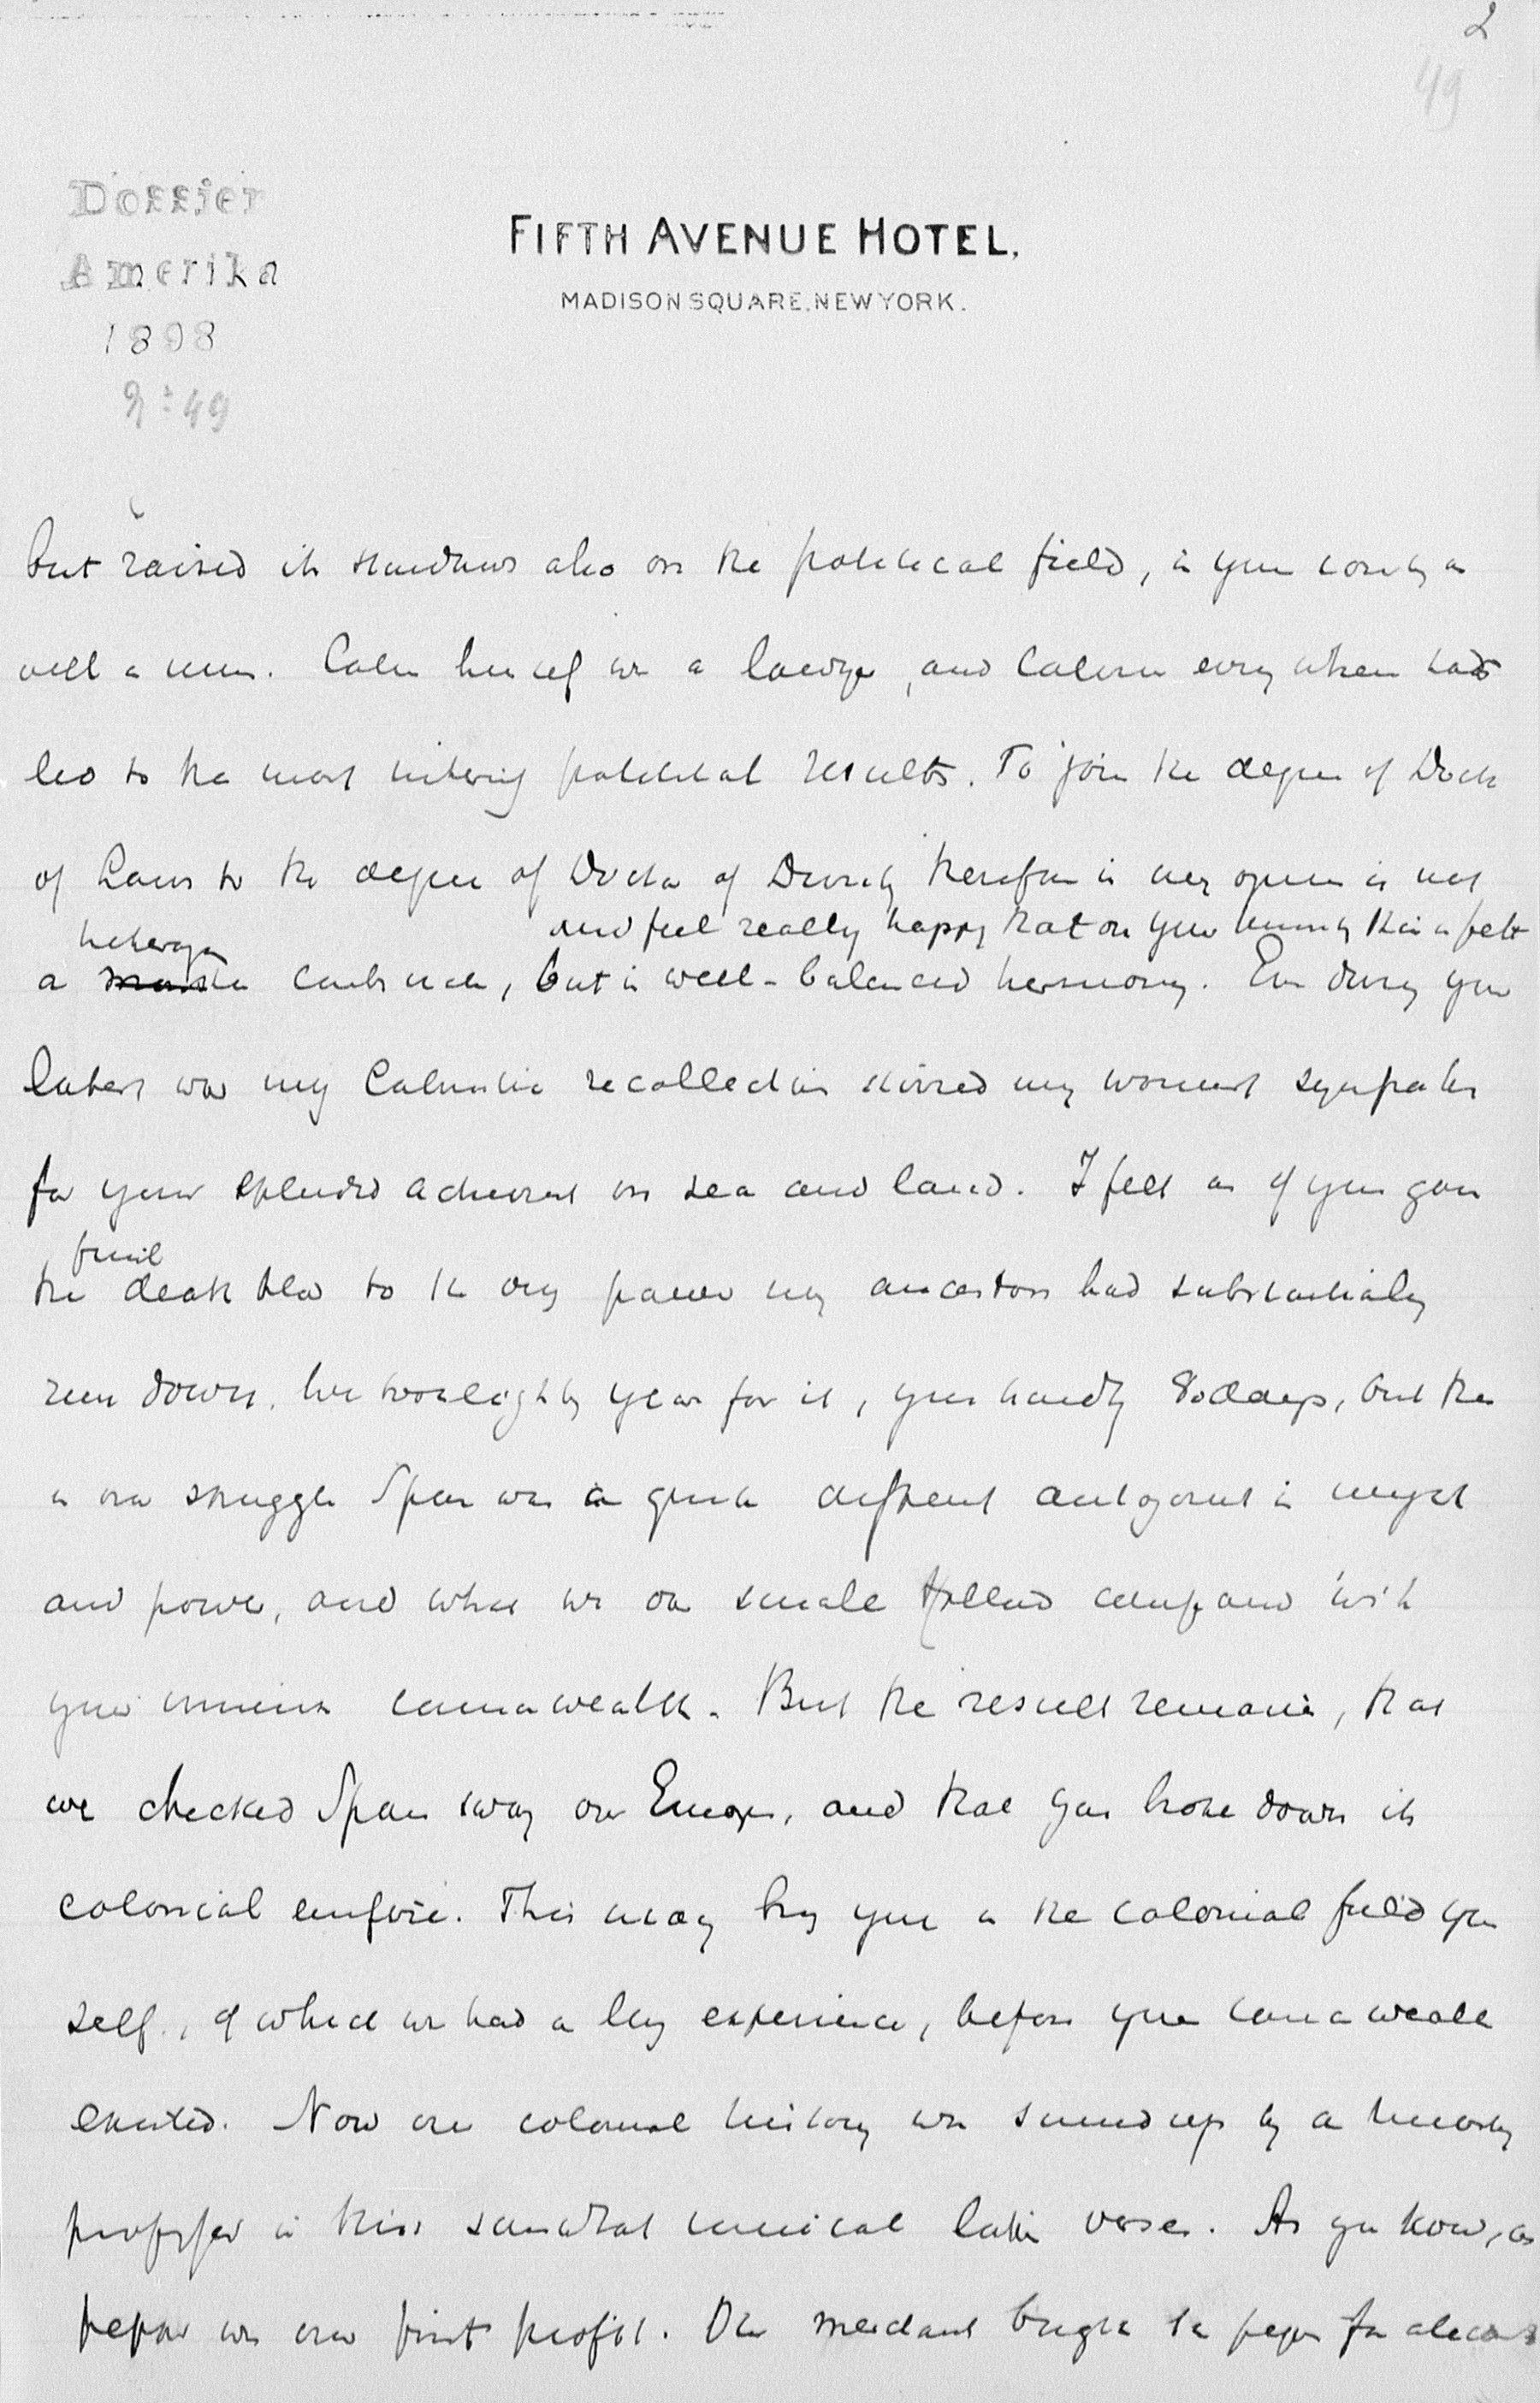 2
49
Dossier
Amerika
1898
49
FIFTH AVENUE HOTEL.
MADISON SQUARE, NEW YORK.
but raised its standards also on the political field, in your country as
well as ours. Calvin himself was a lawyer, and Calvinism everywhere has
led to the most political results. To join the degree of Doctor
of Laws to the degree of Doctor of Divinity therefore in my opinion is not
and feel really happy that on your this is felt
a but a well-balanced harmony. Even during your
latest war my Calvinistic recollections stirred my warmest sympathies
for your splendid achievements on sea and land. I felt as if you gave
final
the death blow to the very power my ancestors had substantially
run down. We eighty years for it, you hardly 80 days, but then
in our struggle Spain was a quite different antagonist in might
and power, and what was our small Holland compared with
your immense commonwealth. But the result remains, that
we checked Spain's sway over Europe, and that you broke down its
colonial empire. This may bring you in the colonial field your
self, of which we had a long experience, before your commonwealth
existed. Now our colonial history was summed up by a University
professor in this somewhat comical latin verses. As you know,
pepper was our first profit. Our merchants bought the pepper for